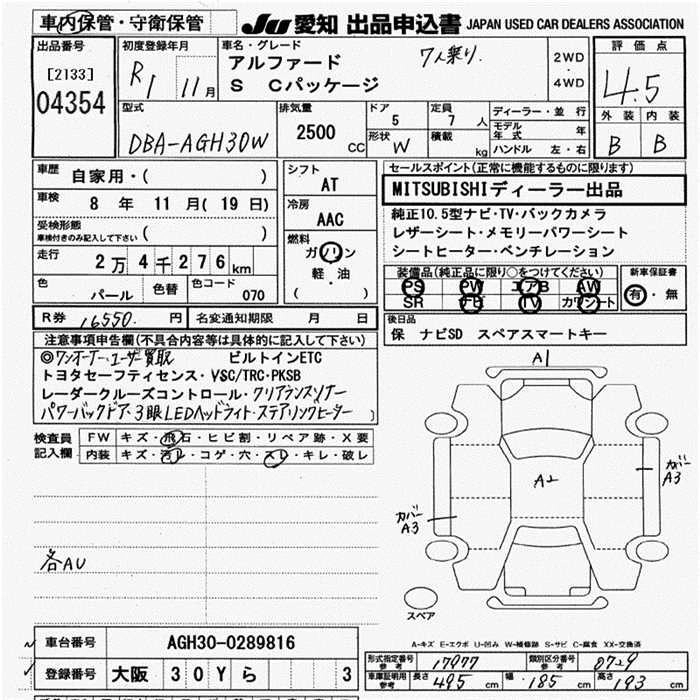 車内保管・守衛保管
JU 愛知 出品申込書 JAPAN USED CAR DEALERS ASSOCIATION
出品番号
[2133]
04354
初度登録年月
R1 11月
車名・グレード
アルファード 7人乗り.
S Cパッケージ
2WD
・
4WD
評価点
4.5
外装 内装
B B
型式
DBA-AGH30W
排気量
2500 CC
ドア
5
形状
W
定員
7 人
積載
kg
ディーラー・並行
モデル年式 年
ハンドル 左・右
車歴 自家用・( )
車検 8 年 11 月( 19 日)
受検形態
車検付きのみ記入して下さい ( )
走行 2万4千276km
色 パール
色替
色コード 070
シフト
AT
冷房
AAC
燃料
ガソリン
・
軽・油
( )
セールスポイント(正常に機能するものに限ります)
MITSUBISHIディーラー出品
純正10.5型ナビ・TV・バックカメラ
レザーシート・メモリーパワーシート
シートヒーター・ベンチレーション
装備品(純正品に限り○をつけてください)
PS PW エアB AW
SR ナビ TV カワシート
新車保証書
有・無
R券 16550. 円
名変通知期限 月 日
後日品
保 ナビSD スペアスマートキー
注意事項申告欄(不具合内容等は具体的に記入して下さい)
◎ワンオーナー・ユーザー買取 ビルトインETC
トヨタセーフティセンス・VSC/TRC・PKSB
レーダークルーズコントロール・クリアランスソナー
パワーバックドア・3眼LEDヘッドライト・ステアリングヒーター
検査員記入欄
FW キズ・飛石・ヒビ割・リペア跡・X要
内装 キズ・汚レ・コゲ・穴・スレ・キレ・破レ
各AU
A1
A2
カバー
A3
カバー
A3
スペア
A-キズ E-エクボ U-凹み W-補修跡 S-サビ C-腐食 XX-交換済
車台番号 AGH30-0289816
登録番号 大阪 30Yら 3
型式指定番号
参考 17977
類別区分番号
参考 0729
車庫証明用
参考 長さ 495 cm 幅 185 cm 高さ 193 cm